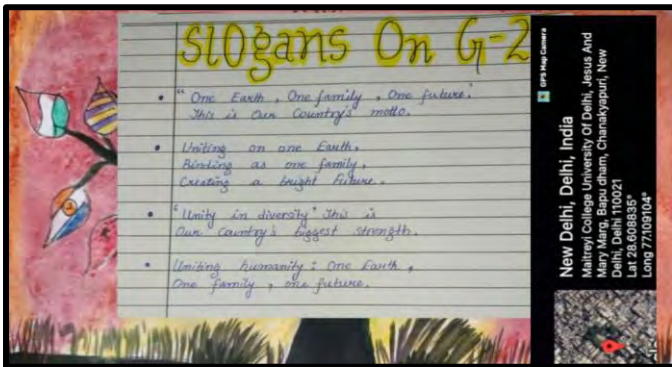 Slogans On G-2
• "One Earth, One family, One future."
This is Our Country's motto.
• Uniting on one Earth,
Binding as one family,
Creating a bright Future.
• "Unity in diversity" This is
Our Country's biggest strength.
• Uniting humanity: One Earth,
One family, one future.
GPS Map Camera
New Delhi, Delhi, India
Maitreyi College University Of Delhi, Jesus And
Mary Marg, Bapu dham, Chanakyapuri, New
Delhi, Delhi 110021
Lat 28.608835°
Long 77.109104°